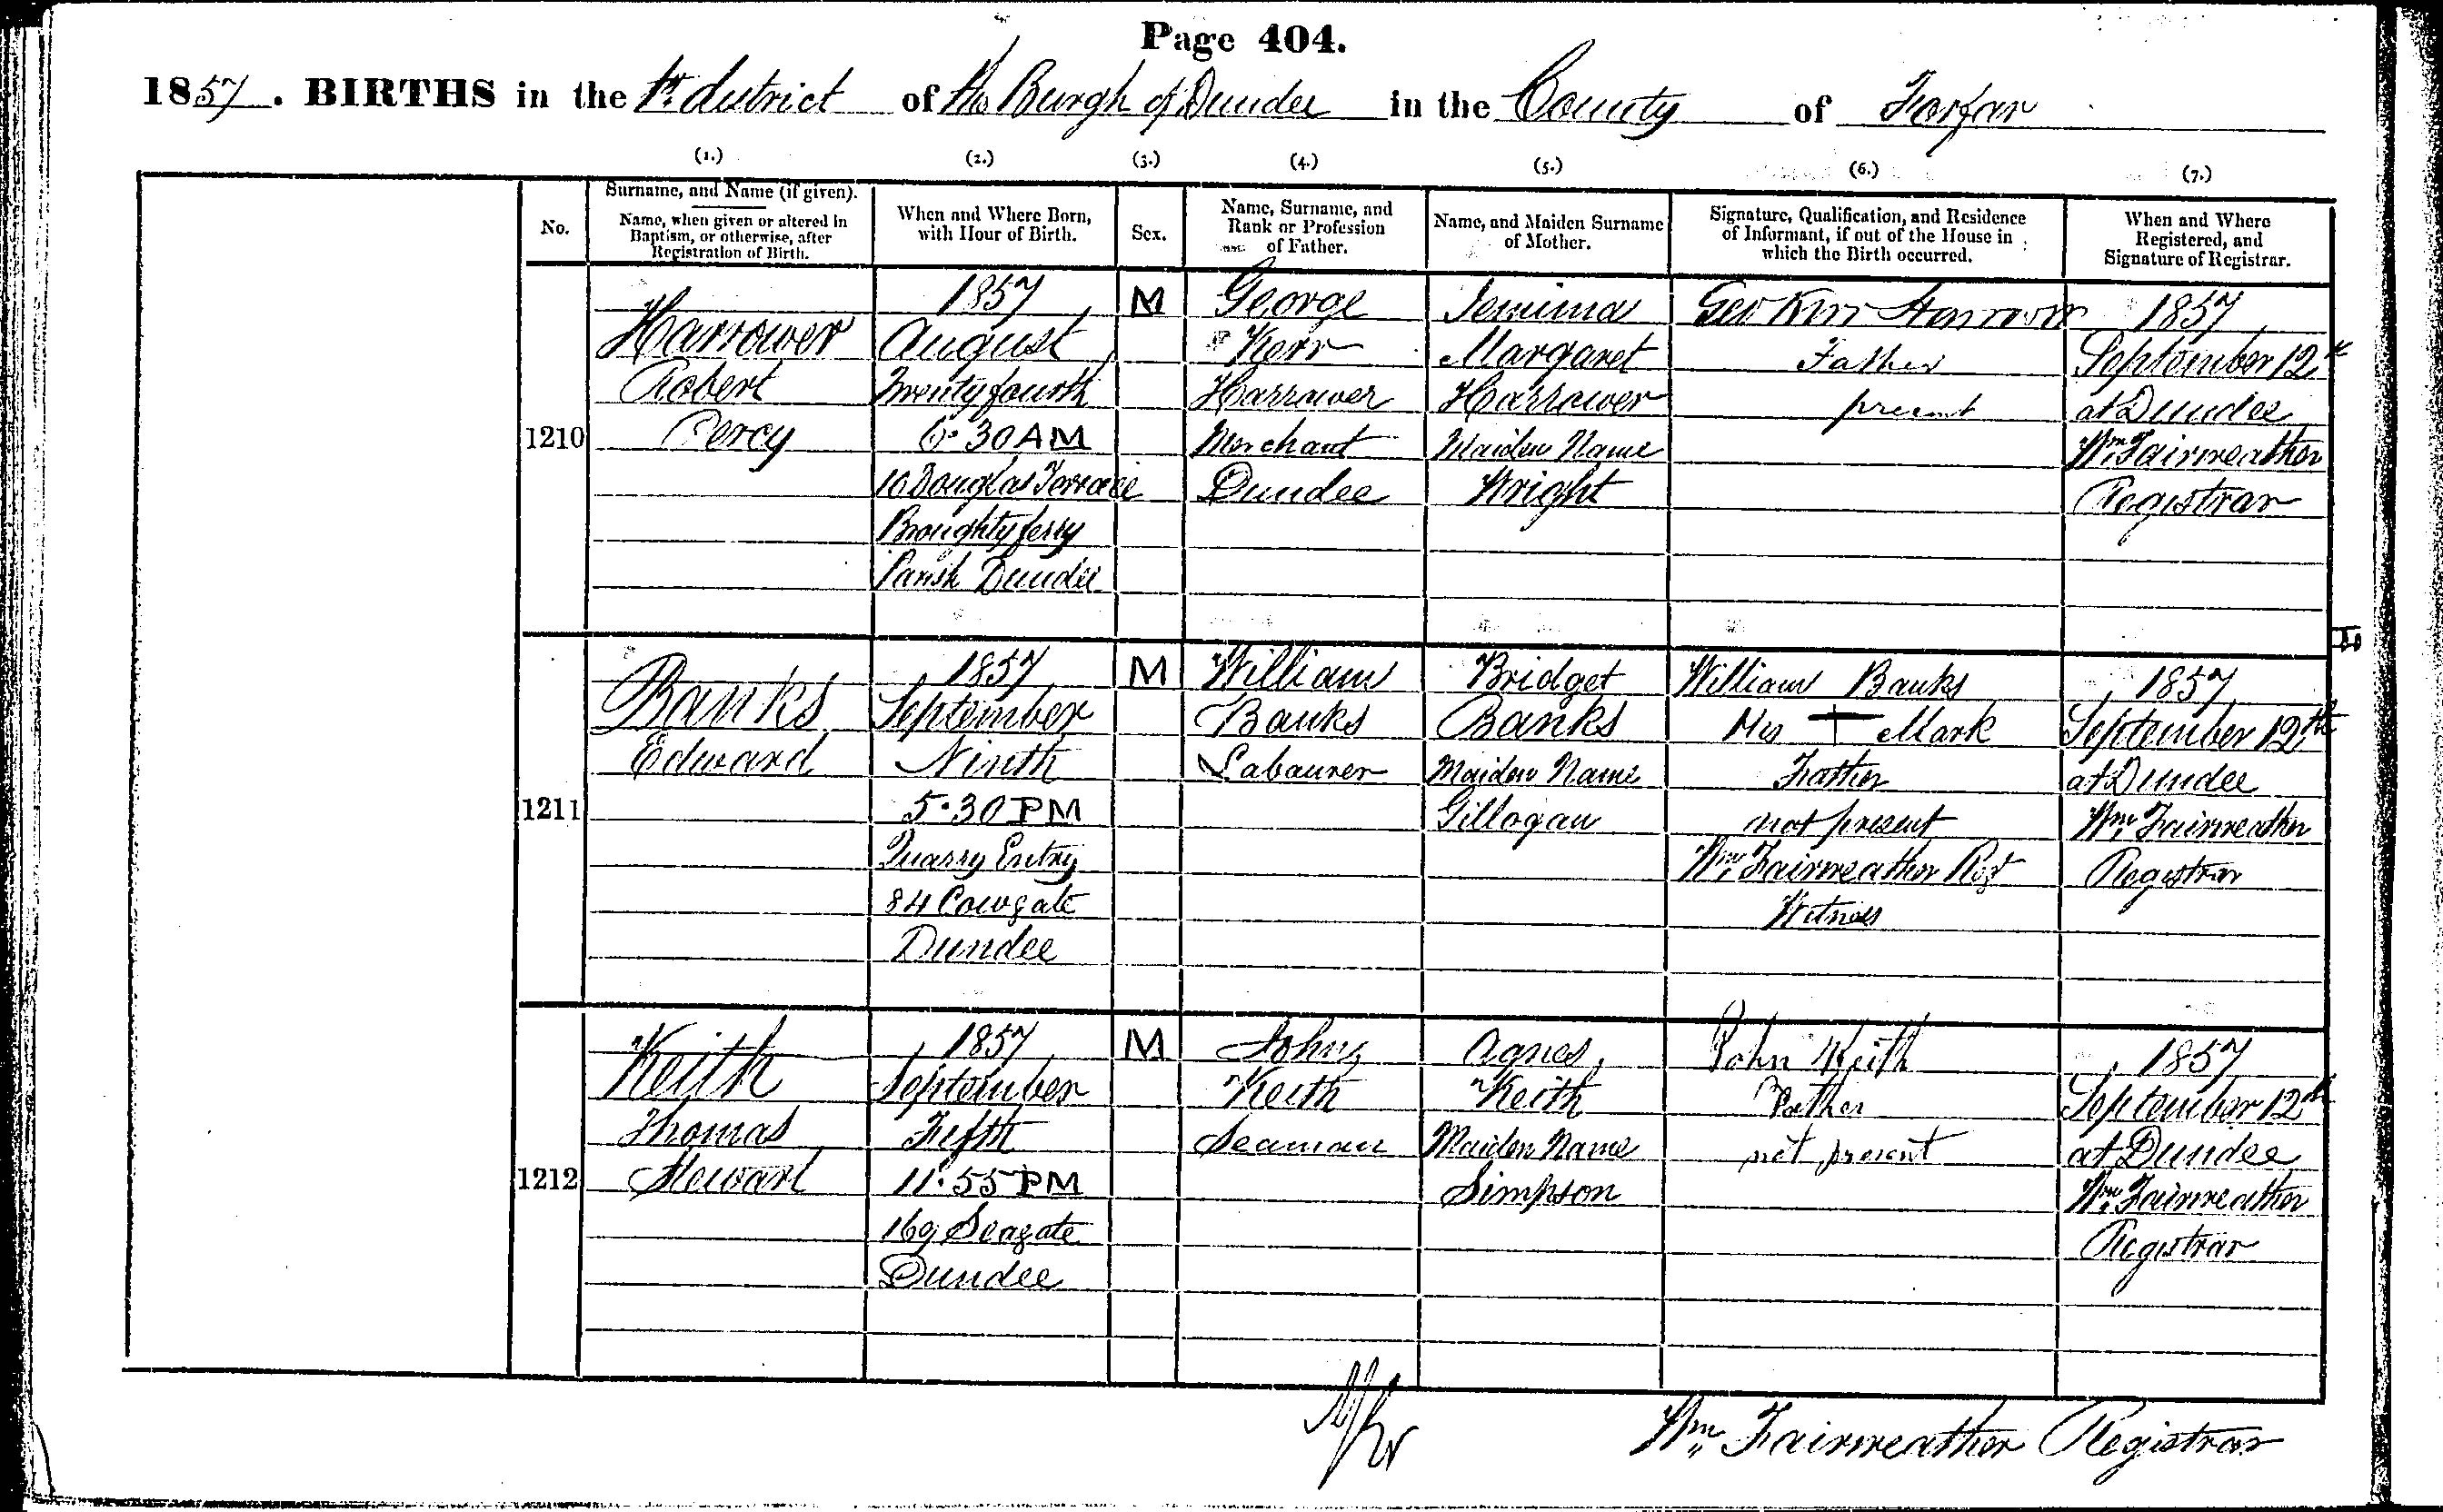 Page 404.
1857. BIRTHS in the 1st district of the Burgh of Dundee in the County of Forfar
(1.) (2.) (3.) (4.) (5.) (6.) (7.)
No.
Surname, and Name (if given).
Name, when given or altered in
Baptism, or otherwise, after
Registration of Birth.
When and Where Born,
with Hour of Birth.
Sex.
Name, Surname, and
Rank or Profession
of Father.
Name, and Maiden Surname
of Mother.
Signature, Qualification, and Residence
of Informant, if out of the House in
which the Birth occurred.
When and Where
Registered, and
Signature of Registrar.
1210
Harrower
Robert
Percy
1857
August
Twenty fourth
6.30 AM
10 Douglas Terrace
Broughty ferry
Parish Dundee
M
George
Kerr
Harrower
Merchant
Dundee
Jemima
Margaret
Harrower
Maiden Name
Wright
Geo Kerr Harrower
Father
present
1857
September 12th
at Dundee
Wm. Fairweather
Registrar
1211
Banks
Edward
1857
September
Ninth
5.30 PM
Quarry Entry
84 Cowgate
Dundee
M
William
Banks
Labourer
Bridget
Banks
Maiden Name
Gillogan
William Banks
His + Mark
Father
not present
Wm. Fairweather Regr
Witness
1857
September 12th
at Dundee
Wm. Fairweather
Registrar
1212
Keith
Thomas
Stewart
1857
September
Fifth
11.55 PM
169 Seagate
Dundee
M
John
Keith
Seaman
Agnes
Keith
Maiden Name
Simpson
John Keith
Father
not present
1857
September 12th
at Dundee
Wm. Fairweather
Registrar
Wm. Fairweather Registrar